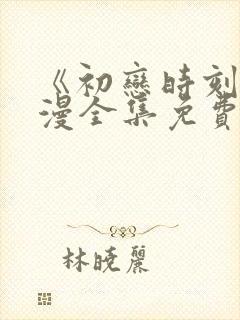 《初戀時刻
漫全集免費
林曉麗